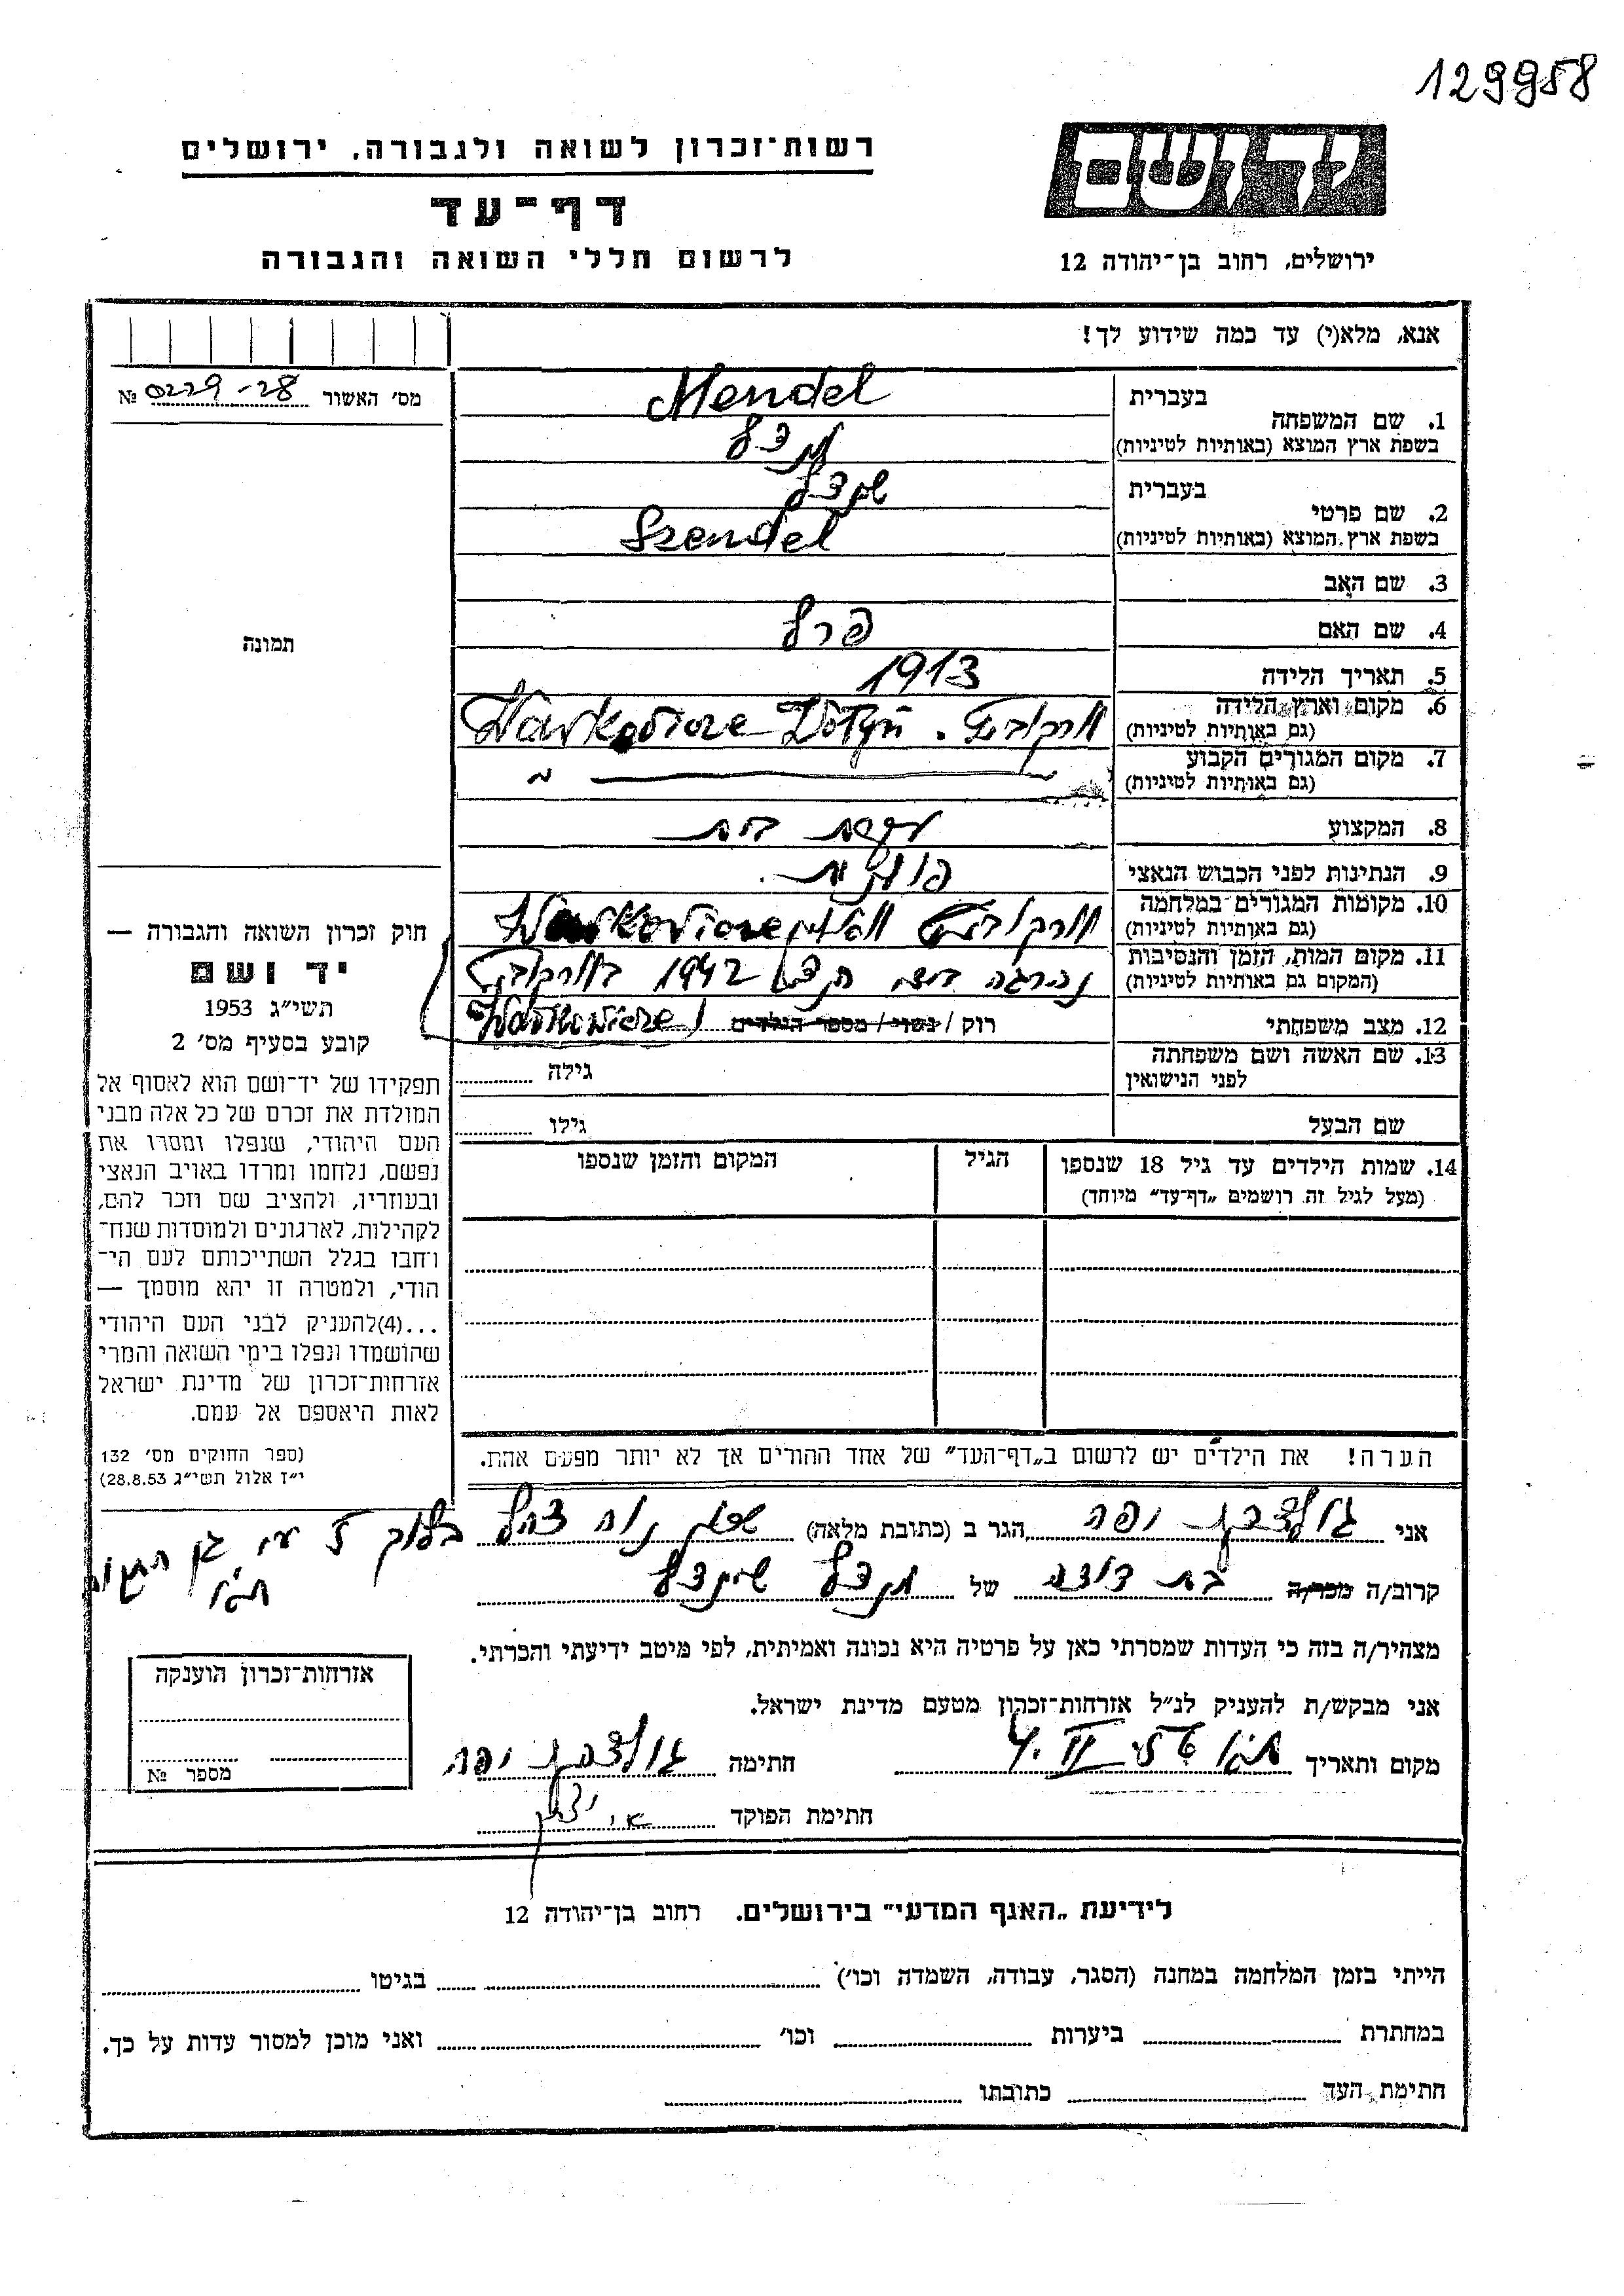 129958
יד ושם
רשות־זכרון לשואה ולגבורה, ירושלים
דף־עד
לרשום חללי השואה והגבורה
ירושלים, רחוב בן־יהודה 12
אנא, מלא(י) עד כמה שידוע לך!
מס׳ האשור 0229-28 №
תמונה
1. שם המשפחה
בעברית Mendel
בשפת ארץ המוצא (באותיות לטיניות) מנדל
2. שם פרטי
בעברית שנדל
בשפת ארץ המוצא (באותיות לטיניות) Szendel
3. שם האב
4. שם האם פרל
5. תאריך הלידה 1913
6. מקום וארץ הלידה
(גם באותיות לטיניות) Warkowicze
7. מקום המגורים הקבוע
(גם באותיות לטיניות) "
8. המקצוע עקרת בית
9. הנתינות לפני הכבוש הנאצי פולנית
10. מקומות המגורים במלחמה
(גם באותיות לטיניות) Warkowicze
11. מקום המות, הזמן והנסיבות
(המקום גם באותיות לטיניות) נהרגה 1942 Warkowicze
12. מצב משפחתי רוק / נשוי / מספר הילדים
13. שם האשה ושם משפחתה
לפני הנישואין
גילה
שם הבעל
גילו
14. שמות הילדים עד גיל 18 שנספו
(מעל לגיל זה רושמים „דף־עד״ מיוחד)
הגיל
המקום והזמן שנספו
הערה! את הילדים יש לרשום ב„דף־העד״ של אחד ההורים אך לא יותר מפעם אחת.
חוק זכרון השואה והגבורה —
יד ושם
תשי״ג 1953
קובע בסעיף מס׳ 2
תפקידו של יד־ושם הוא לאסוף אל
המולדת את זכרם של כל אלה מבני
העם היהודי, שנפלו ומסרו את
נפשם, נלחמו ומרדו באויב הנאצי
ובעוזריו, ולהציב שם וזכר להם,
לקהילות, לארגונים ולמוסדות שנח־
רחבו בגלל השתייכותם לעם הי־
הודי, ולמטרה זו יהא מוסמך —
...(4)להעניק לבני העם היהודי
שהושמדו ונפלו בימי השואה והמרי
אזרחות־זכרון של מדינת ישראל
לאות היאספם אל עמם.
(ספר החוקים מס׳ 132
י״ז אלול תשי״ג 28.8.53)
אני גולדברג יפה הגר ב (כתובת מלאה) שכון נוה צהל בלוק 7
קרוב/ה מכר/ה בת דודה של מנדל שיינדל
מצהיר/ה בזה כי העדות שמסרתי כאן על פרטיה היא נכונה ואמיתית, לפי מיטב ידיעתי והכרתי.
אני מבקש/ת להעניק לנ״ל אזרחות־זכרון מטעם מדינת ישראל.
מקום ותאריך חתימה גולדברג יפה
חתימת הפוקד
אזרחות־זכרון הוענקה
מספר №
לידיעת „האגף המדעי״ בירושלים. רחוב בן־יהודה 12
הייתי בזמן המלחמה במחנה (הסגר, עבודה, השמדה וכו׳) בגיטו
במחתרת ביערות וכו׳ ואני מוכן למסור עדות על כך.
חתימת העד כתובתו